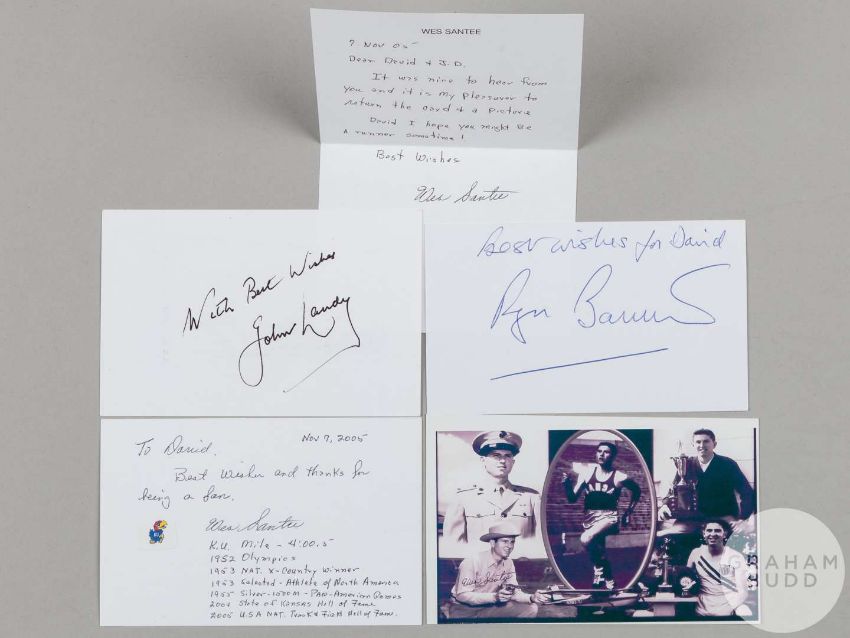 WES SANTEE
7 Nov 05
Dear David & J.D.
It was nice to hear from
you and it is my pleasure to
return the card & a picture
David I hope you might be
a runner sometime!
Best Wishes
Wes Santee
With Best Wishes
John Landy
Best wishes for David
Roger Bannister
To David. Nov 7, 2005
Best Wishes and thanks for
being a fan.
Wes Santee
K.U. Mile - 4:00.5
1952 Olympics
1953 NAT. X-Country Winner
1953 Selected - Athlete of North America
1955 Silver - 1500M - Pan-American Games
2004 State of Kansas Hall of Fame
2005 USA NAT. Track & Field Hall of Fame.
KANSAS
Wes Santee
GRAHAM
BUDD